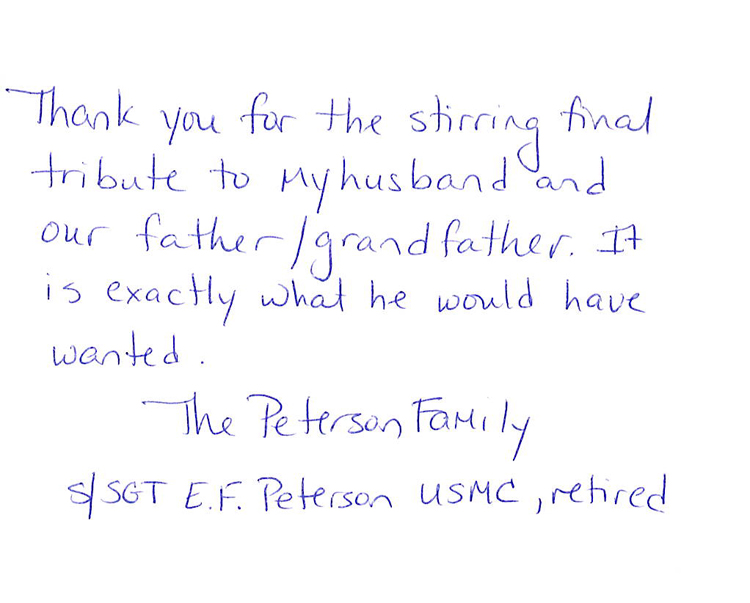 Thank you for the stirring final
tribute to my husband and
our father/grandfather. It
is exactly what he would have
wanted.
The Peterson Family
S/SGT E.F. Peterson USMC, retired